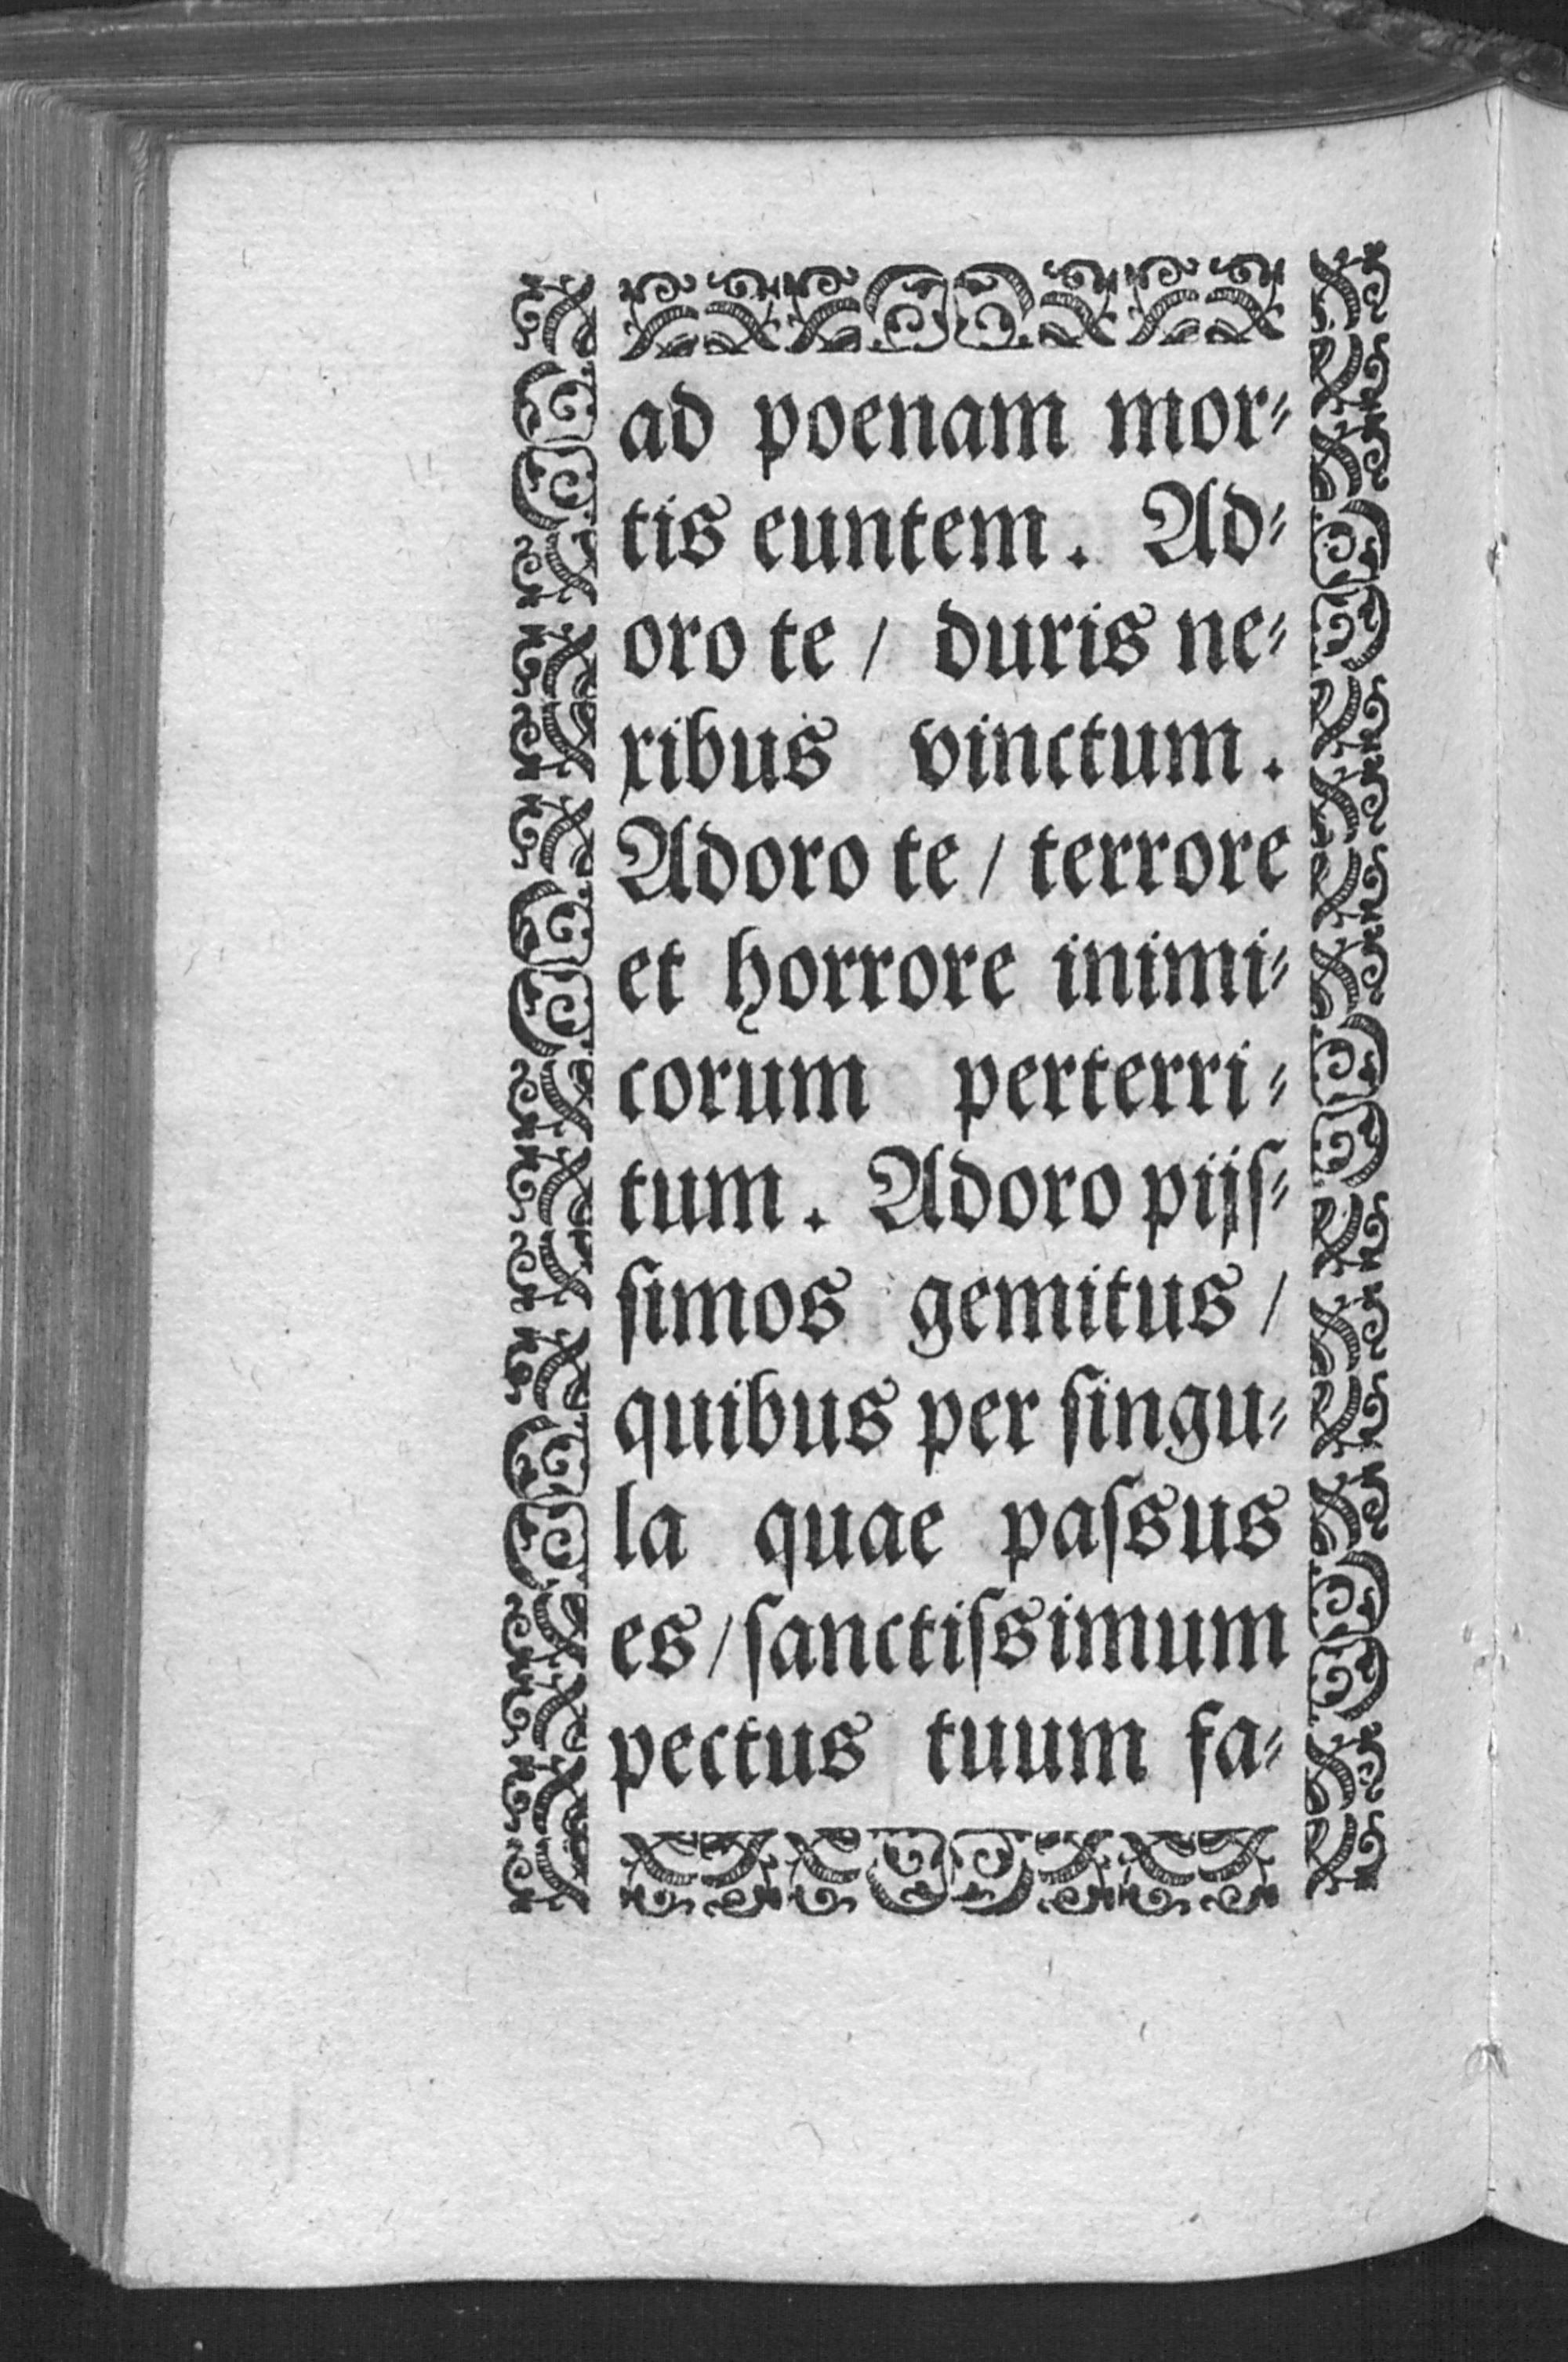 ad poenam mor⸗
tis euntem. Ad⸗
oro te / duris ne⸗
xibus vinctum.
Adoro te / terrore
et horrore inimi⸗
corum perterri⸗
tum. Adoro pijſ⸗
ſimos gemitus /
quibus per ſingu⸗
la quae paſsus
es / ſanctiſsimum
pectus tuum fa⸗